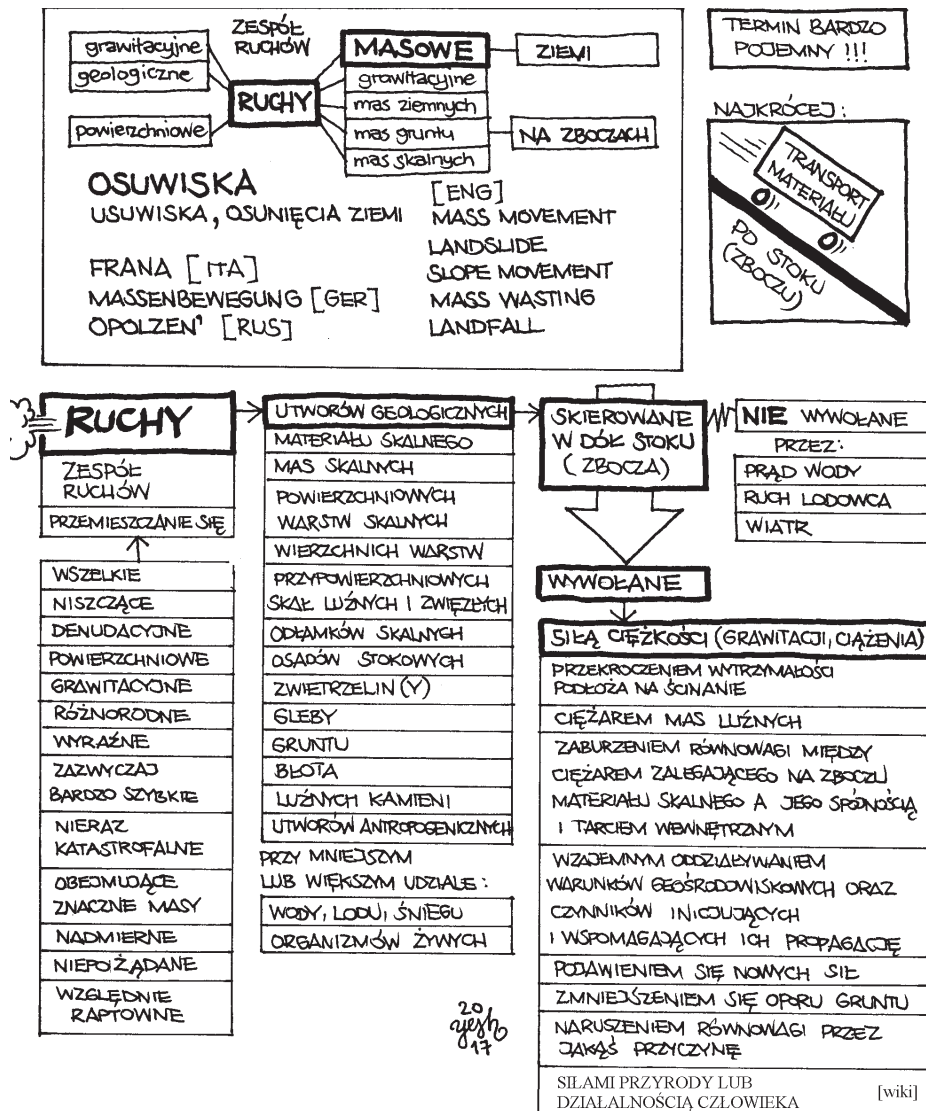 ZESPÓŁ
RUCHÓW
grawitacyjne
geologiczne
powierzchniowe
RUCHY
MASOWE
grawitacyjne
mas ziemnych
mas gruntu
mas skalnych
ZIEMI
NA ZBOCZACH
OSUWISKA
USUWISKA, OSUNIĘCIA ZIEMI
FRANA [ITA]
MASSENBEWEGUNG [GER]
OPOLZEN' [RUS]
[ENG]
MASS MOVEMENT
LANDSLIDE
SLOPE MOVEMENT
MASS WASTING
LANDFALL
TERMIN BARDZO
POJEMNY !!!
NAJKRÓCEJ:
TRANSPORT
MATERIAŁU
PO STOKU
(ZBOCZU)
RUCHY
ZESPÓŁ
RUCHÓW
PRZEMIESZCZANIE SIĘ
WSZELKIE
NISZCZĄCE
DENUDACYJNE
POWIERZCHNIOWE
GRAWITACYJNE
RÓŻNORODNE
WYRAŹNE
ZAZWYCZAJ
BARDZO SZYBKIE
NIERAZ
KATASTROFALNE
OBEJMUJĄCE
ZNACZNE MASY
NADMIERNE
NIEPOŻĄDANE
WZGLĘDNIE
RAPTOWNE
UTWORÓW GEOLOGICZNYCH
MATERIAŁU SKALNEGO
MAS SKALNYCH
POWIERZCHNIOWYCH
WARSTW SKALNYCH
WIERZCHNICH WARSTW
PRZYPOWIERZCHNIOWYCH
SKAŁ LUŹNYCH I ZWIĘZŁYCH
ODŁAMKÓW SKALNYCH
OSADÓW STOKOWYCH
ZWIETRZELIN(Y)
GLEBY
GRUNTU
BŁOTA
LUŹNYCH KAMIENI
UTWORÓW ANTROPOGENICZNYCH
PRZY MNIEJSZYM
LUB WIĘKSZYM UDZIALE:
WODY, LODU, ŚNIEGU
ORGANIZMÓW ŻYWYCH
20
yesh
17
SKIEROWANE
W DÓŁ STOKU
(ZBOCZA)
NIE WYWOŁANE
PRZEZ:
PRĄD WODY
RUCH LODOWCA
WIATR
WYWOŁANE
SIŁĄ CIĘŻKOŚCI (GRAWITACJI, CIĄŻENIA)
PRZEKROCZENIEM WYTRZYMAŁOŚCI
PODŁOŻA NA ŚCINANIE
CIĘŻAREM MAS LUŹNYCH
ZABURZENIEM RÓWNOWAGI MIĘDZY
CIĘŻAREM ZALEGAJĄCEGO NA ZBOCZU
MATERIAŁU SKALNEGO A JEGO SPÓJNOŚCIĄ
I TARCIEM WEWNĘTRZNYM
WZAJEMNYM ODDZIAŁYWANIEM
WARUNKÓW GEOŚRODOWISKOWYCH ORAZ
CZYNNIKÓW INICJUJĄCYCH
I WSPOMAGAJĄCYCH ICH PROPAGACJĘ
POJAWIENIEM SIĘ NOWYCH SIŁ
ZMNIEJSZENIEM SIĘ OPORU GRUNTU
NARUSZENIEM RÓWNOWAGI PRZEZ
JAKĄŚ PRZYCZYNĘ
SIŁAMI PRZYRODY LUB
DZIAŁALNOŚCIĄ CZŁOWIEKA
[wiki]